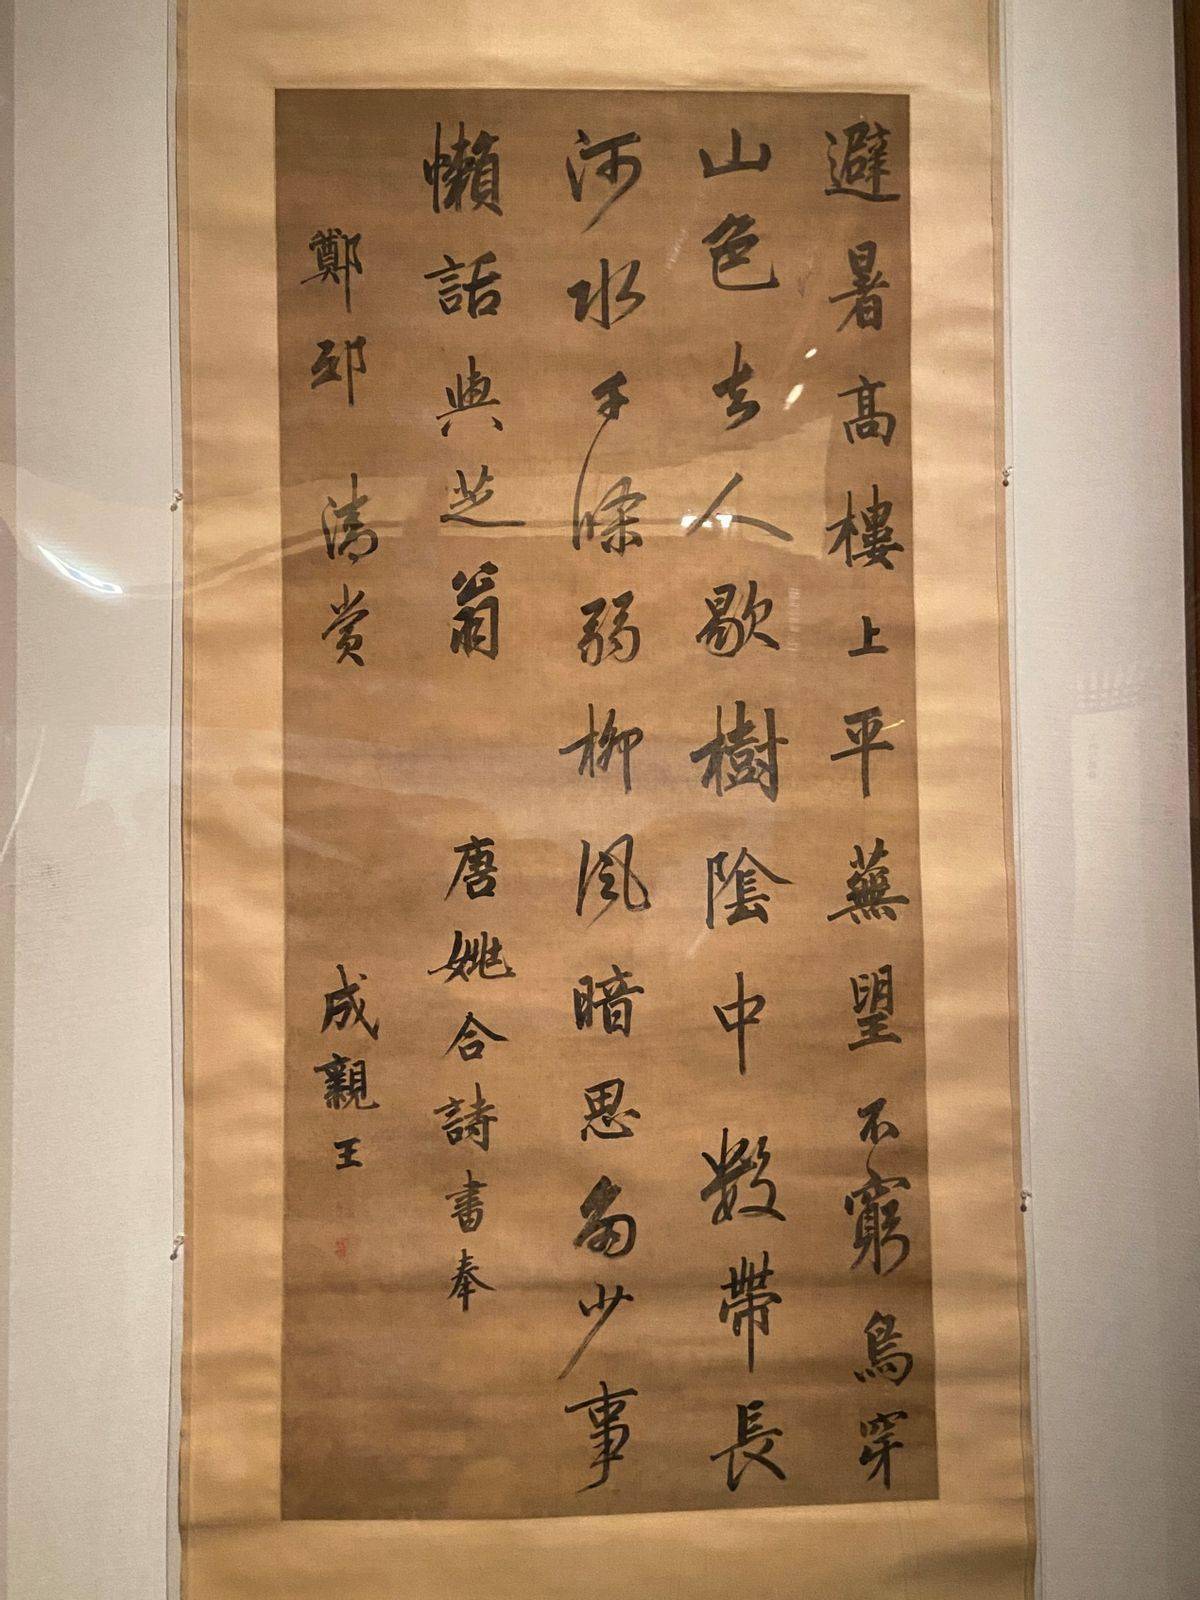 避暑高樓上平蕪望不窮鳥穿
山色去人歇樹陰中數帶長
河水千條弱柳風暗思多少事
懶話與芝翁
唐姚合詩書奉
鄭邸清賞
成親王